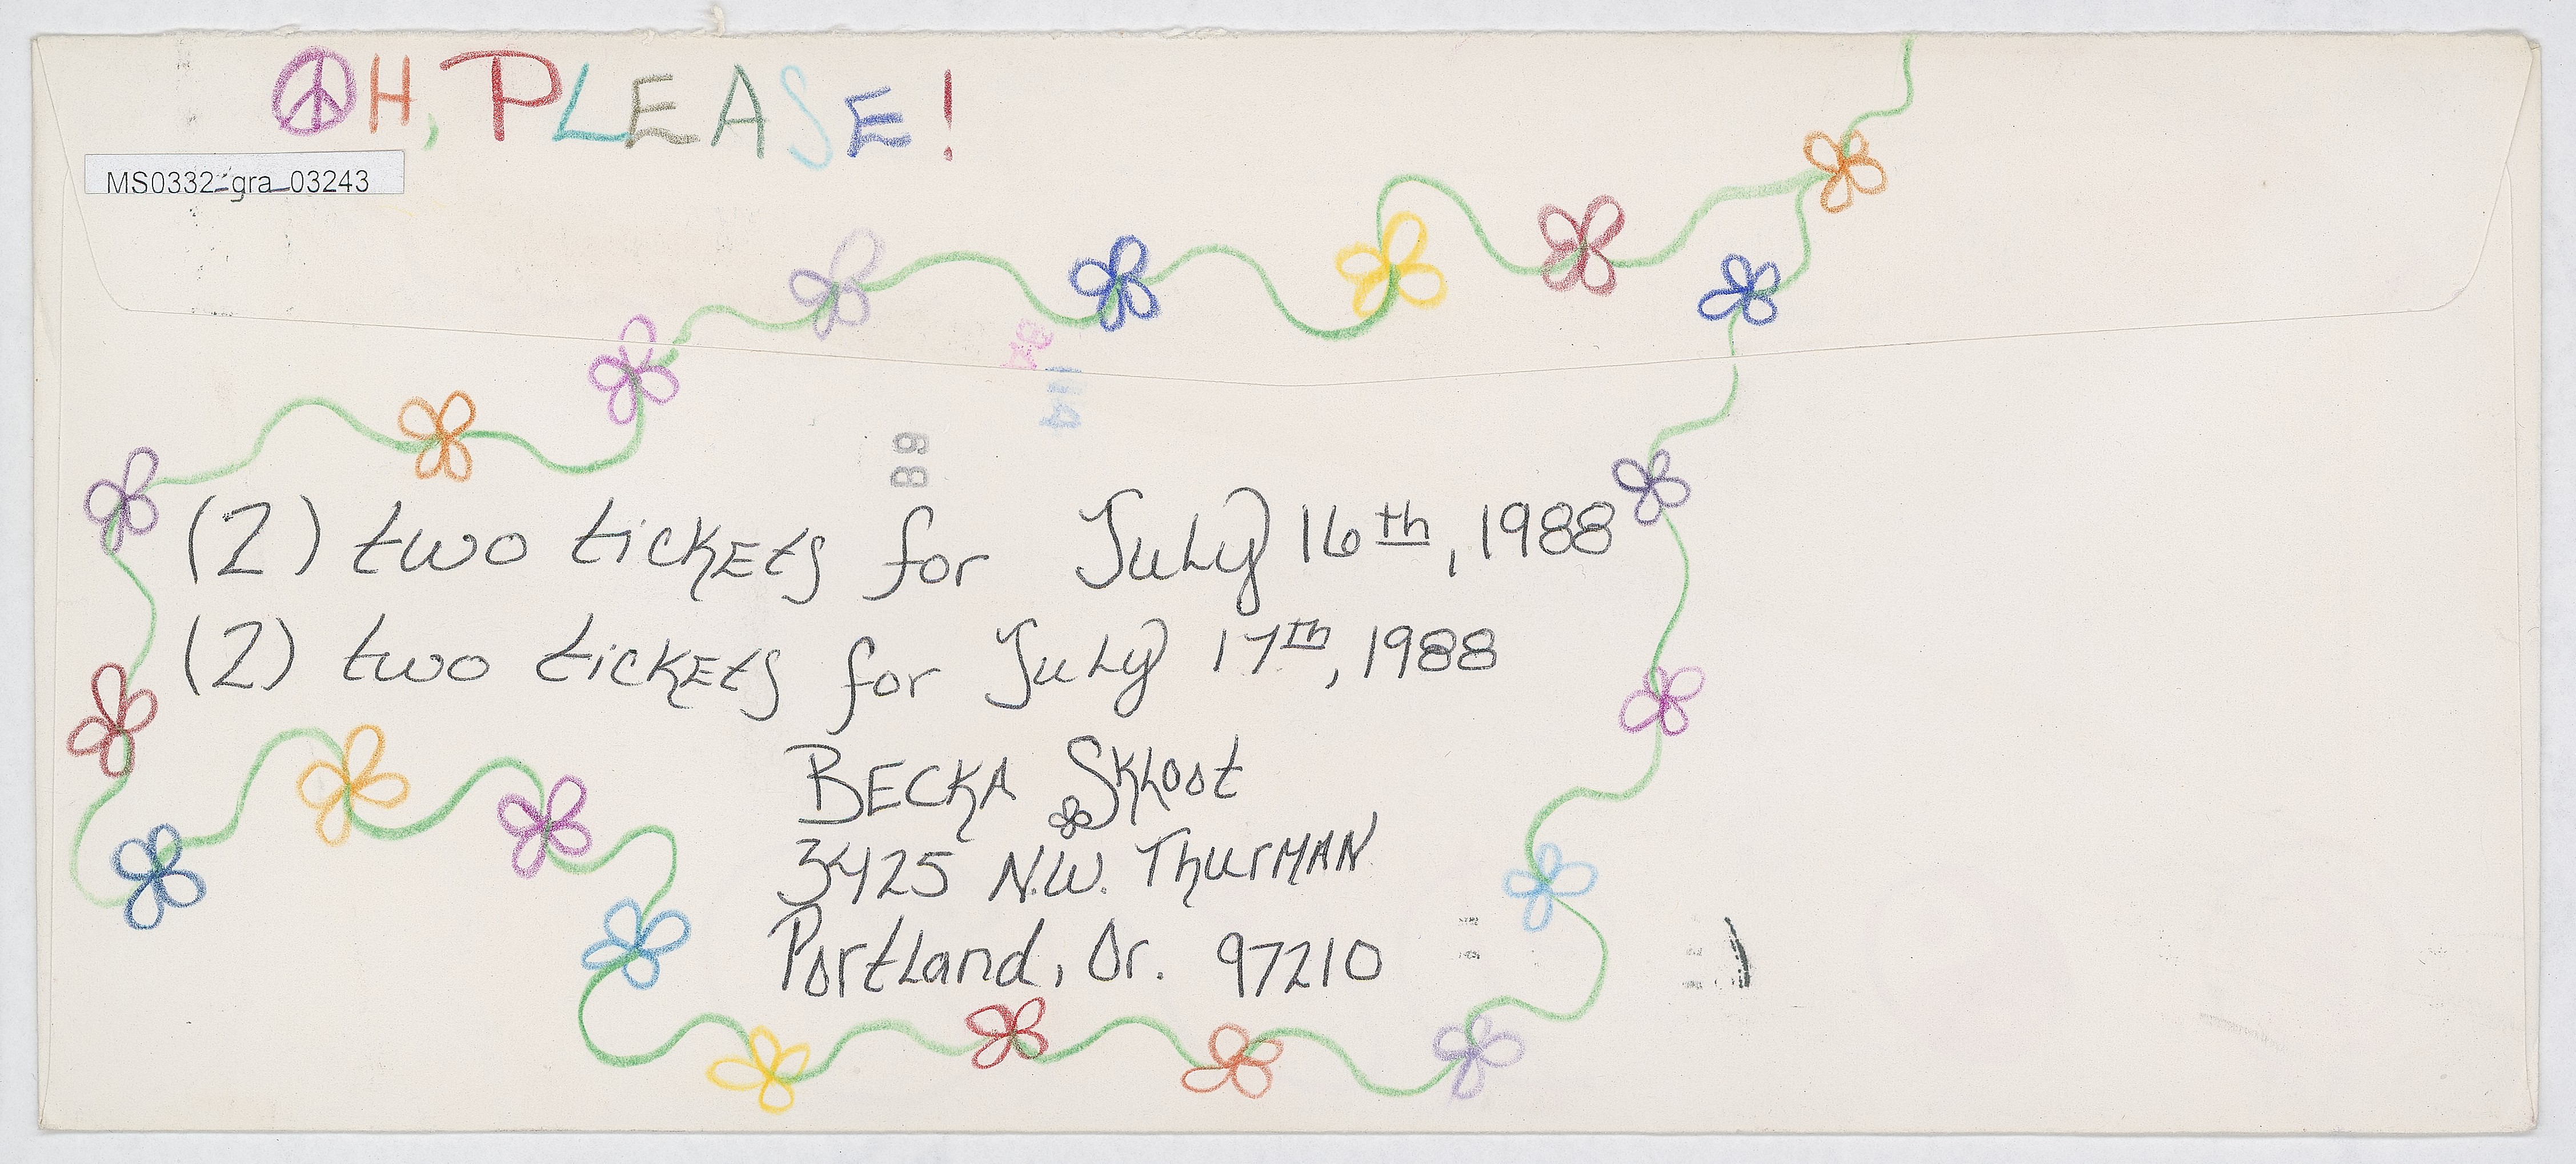 OH, PLEASE!
MS0332_gra_03243
89
(2) two tickets for July 16th, 1988
(2) two tickets for July 17th, 1988
Becka Skloot
3425 N.W. Thurman
Portland, Or. 97210